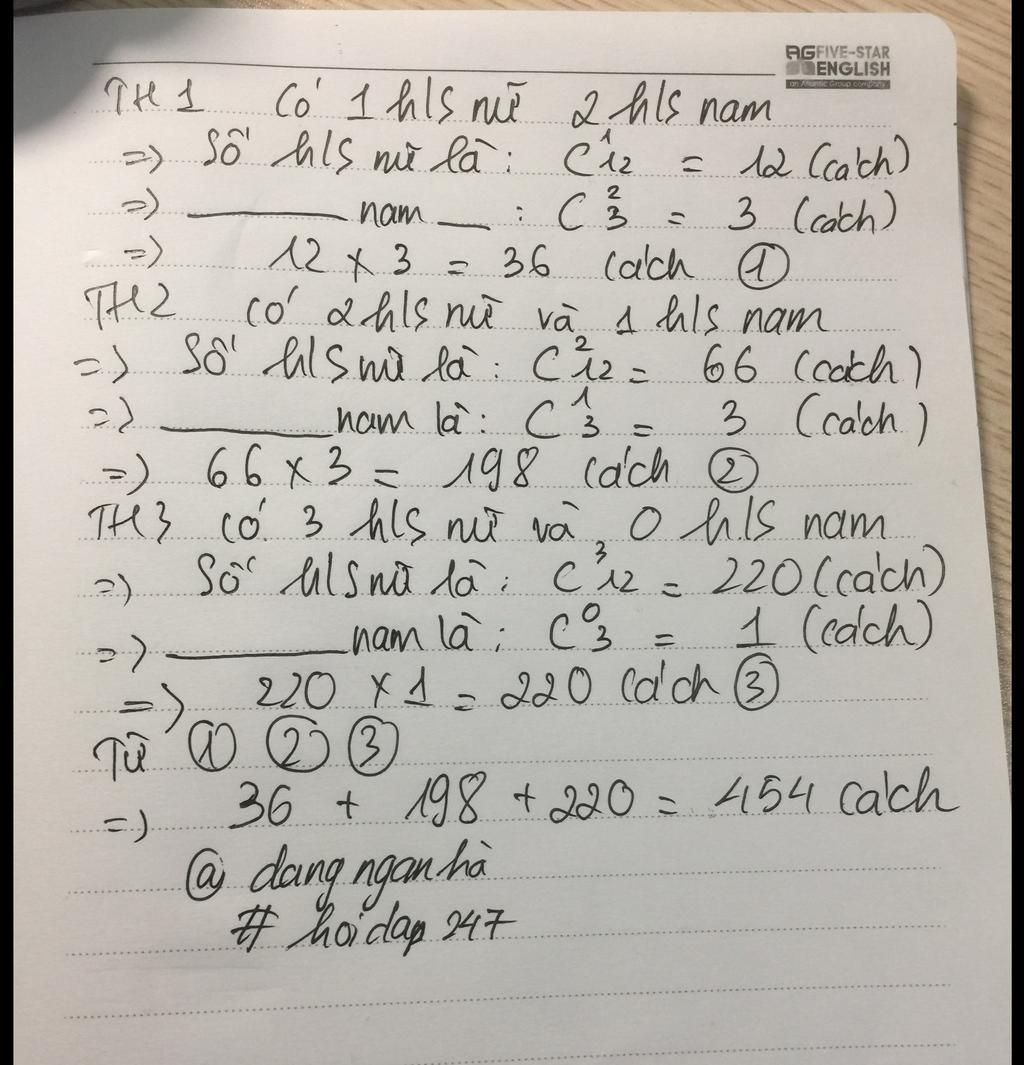 AG FIVE-STAR
ENGLISH
an Atlantic Group company
TH1 có 1 hls nữ 2 hls nam
=> Số hls nữ là: C¹₁₂ = 12 (cách)
=> ______ nam __ : C²₃ = 3 (cách)
=> 12 x 3 = 36 cách ①
TH2 có 2 hls nữ và 1 hls nam
=> Số hls nữ là: C²₁₂ = 66 (cách)
=> ______ nam là: C¹₃ = 3 (cách)
=> 66 x 3 = 198 cách ②
TH3 có 3 hls nữ và 0 hls nam
=> Số hls nữ là: C³₁₂ = 220 (cách)
=> ______ nam là: C⁰₃ = 1 (cách)
=> 220 x 1 = 220 cách ③
Từ ① ② ③
=> 36 + 198 + 220 = 454 cách
@ dang ngan hà
# hoidap 247